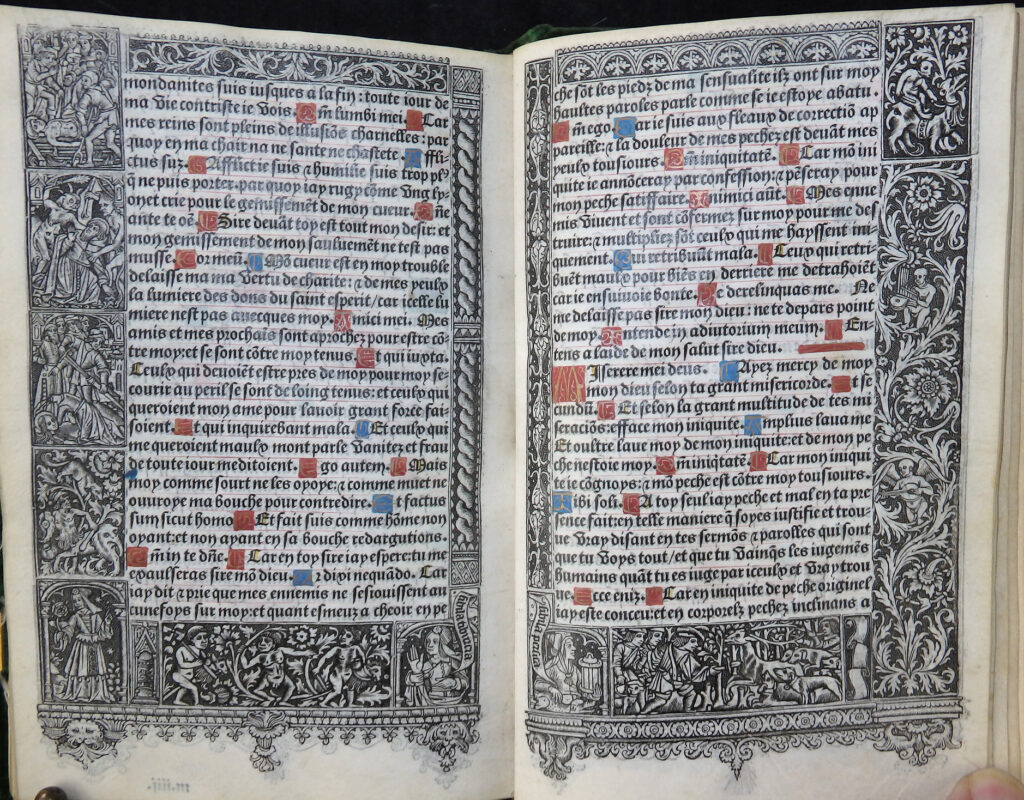 mondanites suis iusques a la fin: toute iour de
ma vie contriste ie vois. Qm̄ lumbi mei. Car
mes reins sont pleins de illusiōs charnelles: par
quoy en ma chair na ne sante ne chastete. Affli-
ctus suz. Afflict ie suis ⁊ humilie suis trop pl⁹
q̄ ne puis porter. par quoy iay rugy cōme vng ly
onet crie pour le gemissement de mon cueur. Dn̄e
ante te oē. Sire devāt toy est tout mon desir: et
mon gemissement de mon sauluemēt ne test pas
musse. Cor meū. Mō cueur est en moy trouble
delaisse ma ma vertu de charite: ⁊ de mes peulx
la lumiere des dons du saint esperit/car icelle lu
miere nest pas avecques moy. Amici mei. Mes
amis et mes prochaīs sont aprochez pour estre cō
tre moy: et se sont cōtre moy tenus. Et qui iuxta.
Ceulx qui devoiēt estre pres de moy pour moy se
courir au peril se sont de loing tenus: et ceulx qui
queroient mon ame pour lavoir grant force fai-
soient. Et qui inquirebant mala. Et ceulx qui
me queroient maulx mont parle vanitez et frau
de toute iour meditoient. Ego autem. Mais
moy comme sourt ne les oyoye: ⁊ comme muet ne
ouvroye ma bouche pour contredire. Et factus
sum sicut homo. Et fait suis comme hōme non
oyant: et non ayant en sa bouche redargutions.
Qm̄ in te dn̄e. Car en toy sire iay espere: tu me
exaulseras sire mō dieu. Quia dixi nequādo. Car
iay dit ⁊ prie que mes ennemis ne sesiouissent au
cunefoys sur moy: et quant esmeuz a cheoir en pe
m.iii.
che sōt les piedz de ma sensualite ilz ont sur moy
haultes paroles parle comme se ie estoye abatu.
Qm̄ ego. Car ie suis aux fleaux de correctiō ap
pareille: ⁊ la douleur de mes pechez est devāt mes
peulx tousiours. Qm̄ iniquitatē. Car mō ini
quite ie annōceray par confession: ⁊ pēseray pour
mon peche satiffaire. Inimici aūt. Mes enne
mis vivent et sont cōfermez sur moy pour me des
truire: ⁊ multipliez sōt ceulx qui me hayssent ini-
quement. Qui retribuāt mala. Ceulx qui retri-
buēt maulx pour biēs en derriere me detrahoiēt
car ie ensuivoie bonte. Ne derelinquas me. Ne
me delaisse pas sire mon dieu: ne te depars point
moy. Intende in adiutorium meum. En-
tens a laide de mon salut sire dieu.
Miserere mei deus. Ayez mercy de moy
mon dieu selon ta grant misericorde. Et se
cundū. Et selon la grant multitude de tes mi
seraciōs: efface mon iniquite. Amplius lava me.
Et oultre lave moy de mon iniquite: et de mon pe
che nestoie moy. Qm̄ iniq̄tatē. Car mon iniqui
te ie cōgnoys: ⁊ mō peche est cōtre moy tousiours.
Tibi soli. A toy seul iay peche et mal en ta pre
sence fait: en telle maniere q̄ soyes iustifie et trou-
ve vray disant en tes sermōs ⁊ parolles qui sont
que tu voys tout/ et que tu vaīq̄s les iugemēs
humains quāt tu es iuge par iceulx et vray trou
ve. Ecce eniz. Car en iniquite de peche originel
iay este conceu: et en corporelz pechez inclinans a